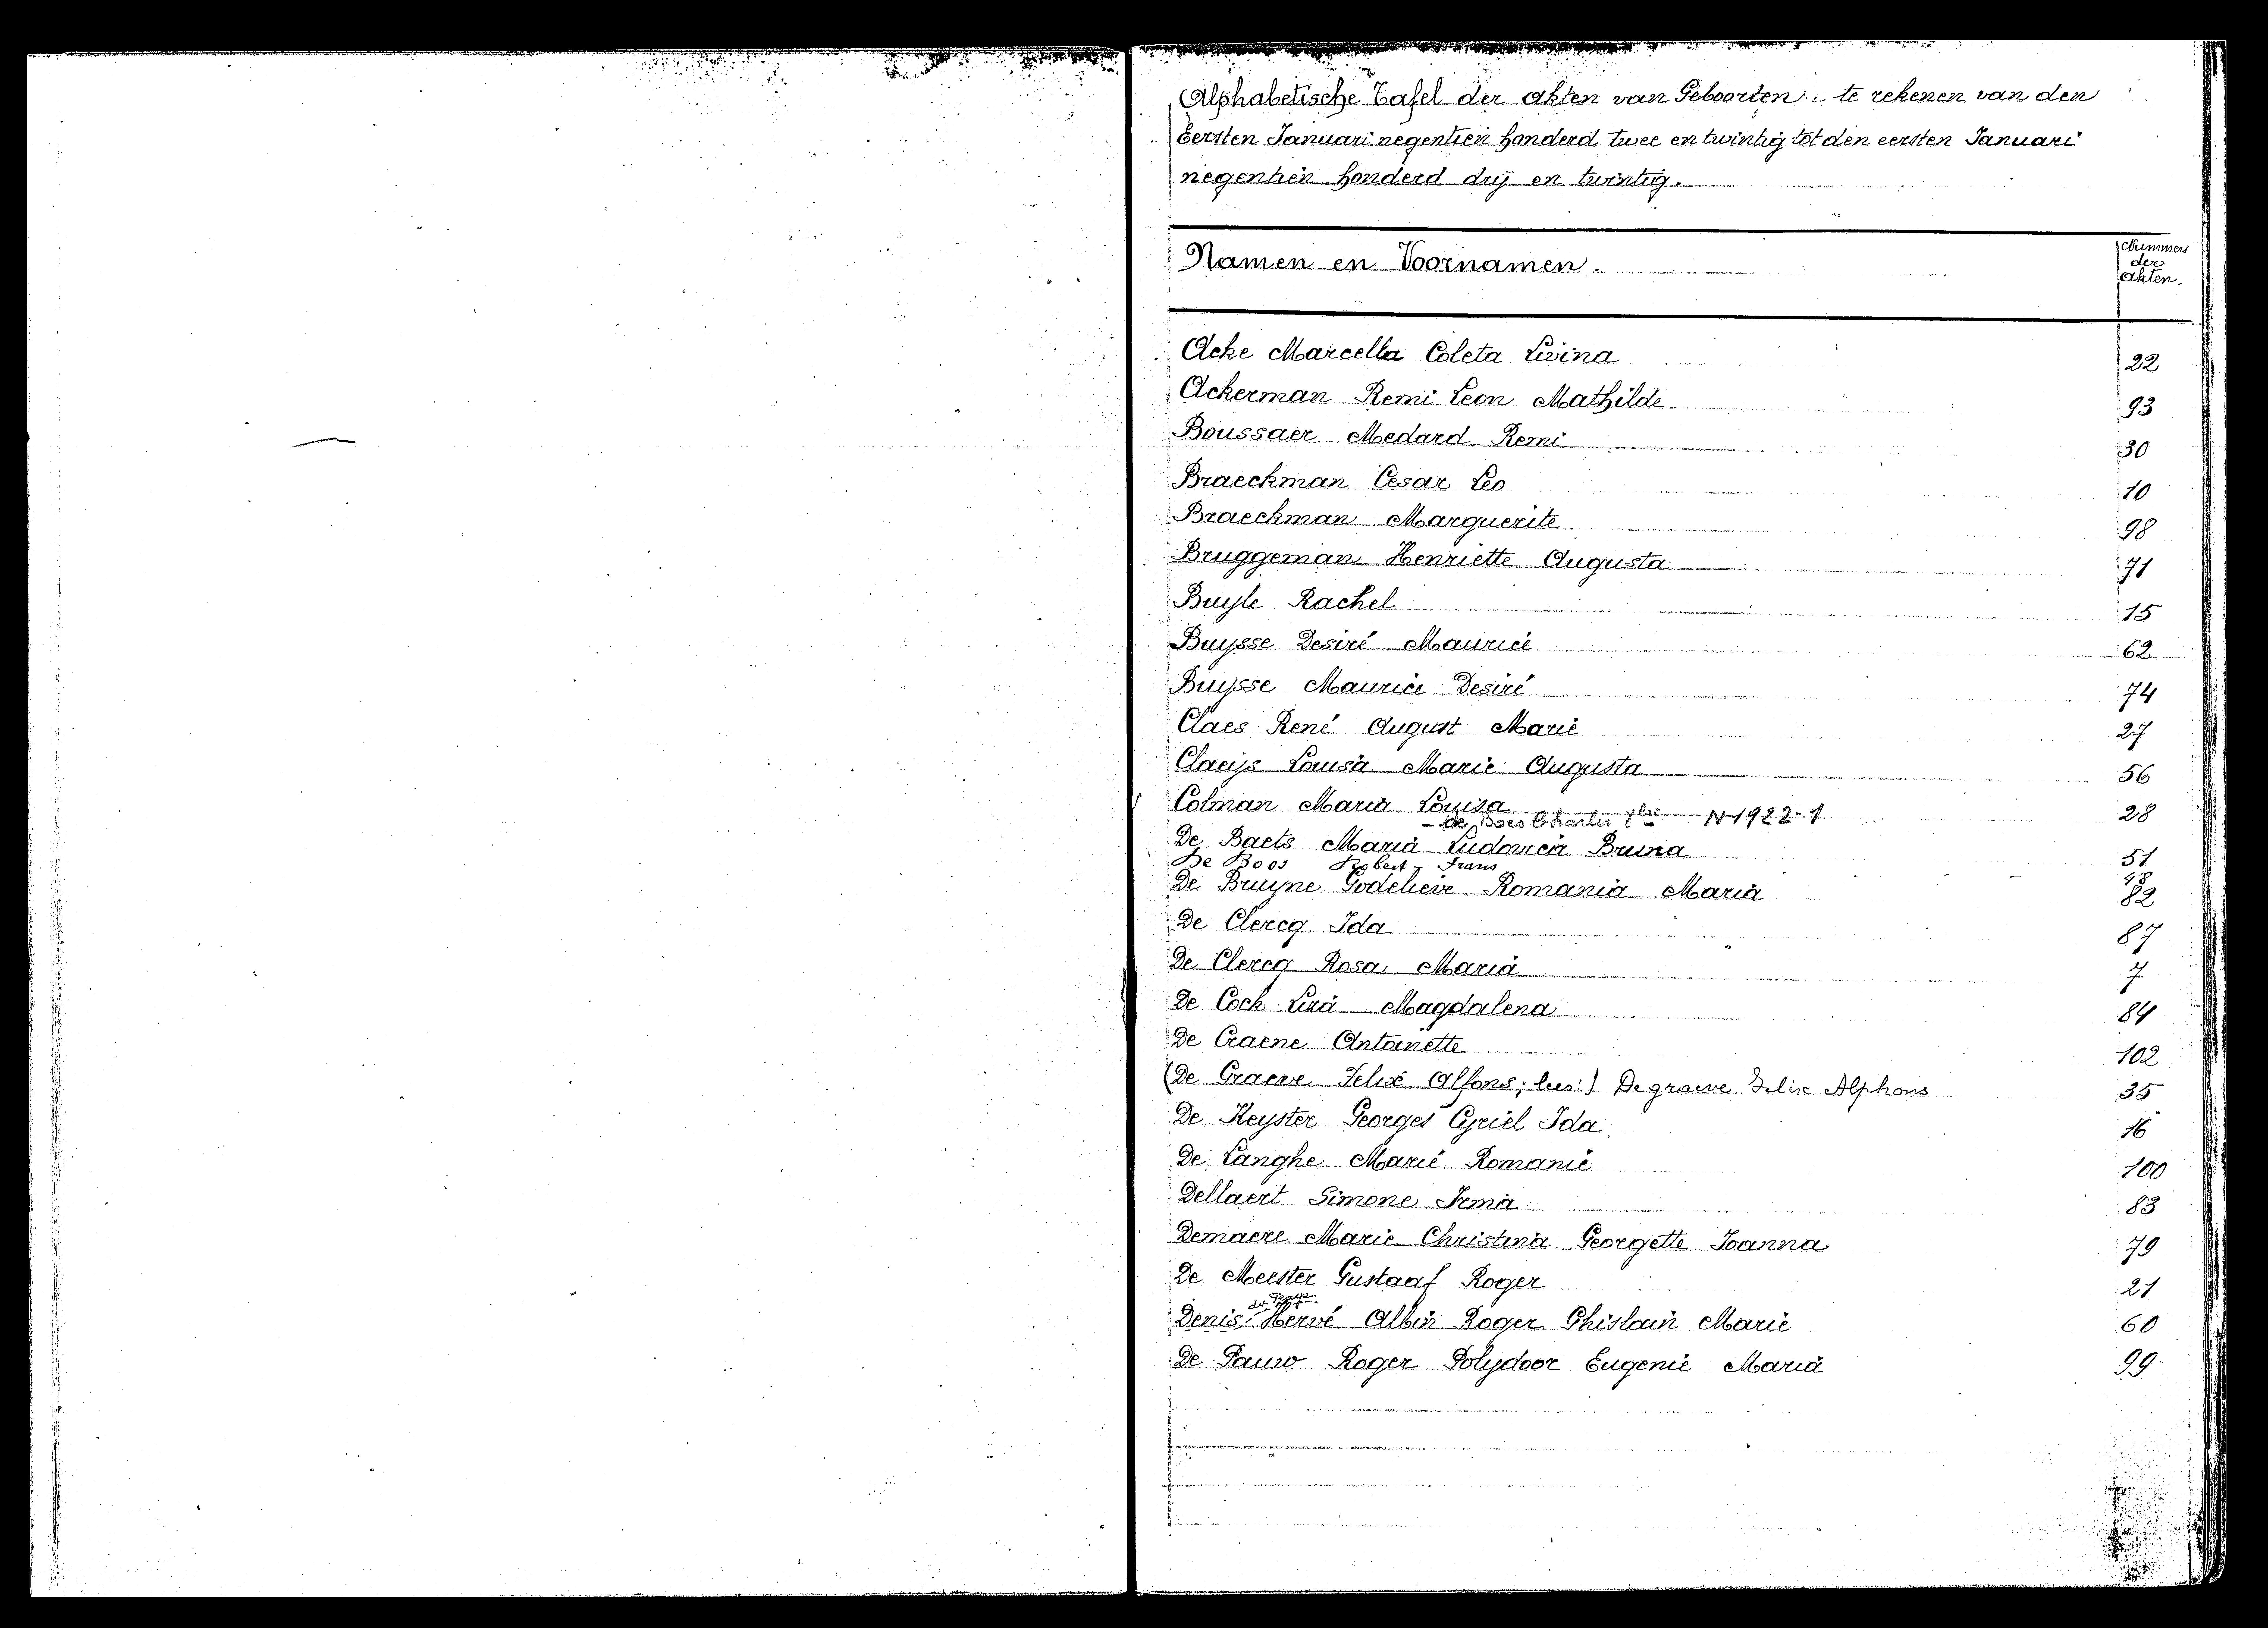 Alphabetische Tafel der akten van Geboorten te rekenen van den
Eersten Januari negentien honderd twee en twintig tot den eersten Januari
negentien honderd drij en twintig.
Namen en Voornamen.
Nummers
der
akten.
Acke Marcella Coleta Livina 22
Ackerman Remi Leon Mathilde 93
Boussaer Medard Remi 30
Braeckman Cesar Leo 10
Braeckman Marguerite 98
Bruggeman Henriette Augusta 71
Buyle Rachel 15
Buysse Desiré Maurice 62
Buysse Maurice Desiré 74
Claes René August Marie 27
Claeijs Louisa Marie Augusta 56
Colman Maria Louisa 28
- de Boes Charles N 1922-1
De Baets Maria Ludovica Bruna 51
De Boos Robert - Frans 48
De Bruyne Godelieve Romania Maria 82
De Clercq Ida 87
De Clercq Rosa Maria 7
De Cock Lira Magdalena 84
De Craene Antoinette 102
(De Graeve Felix Alfons; lees:) Degraeve Felix Alphons 35
De Keyster Georges Cyriel Ida 16
De Langhe Marie Romanie 100
Dellaert Simone Irma 83
Demaere Marie Christina Georgette Joanna 79
De Meester Gustaaf Roger 21
Denis Hervé Albin Roger Ghislain Marie 60
De Pauw Roger Polydoor Eugenie Maria 99